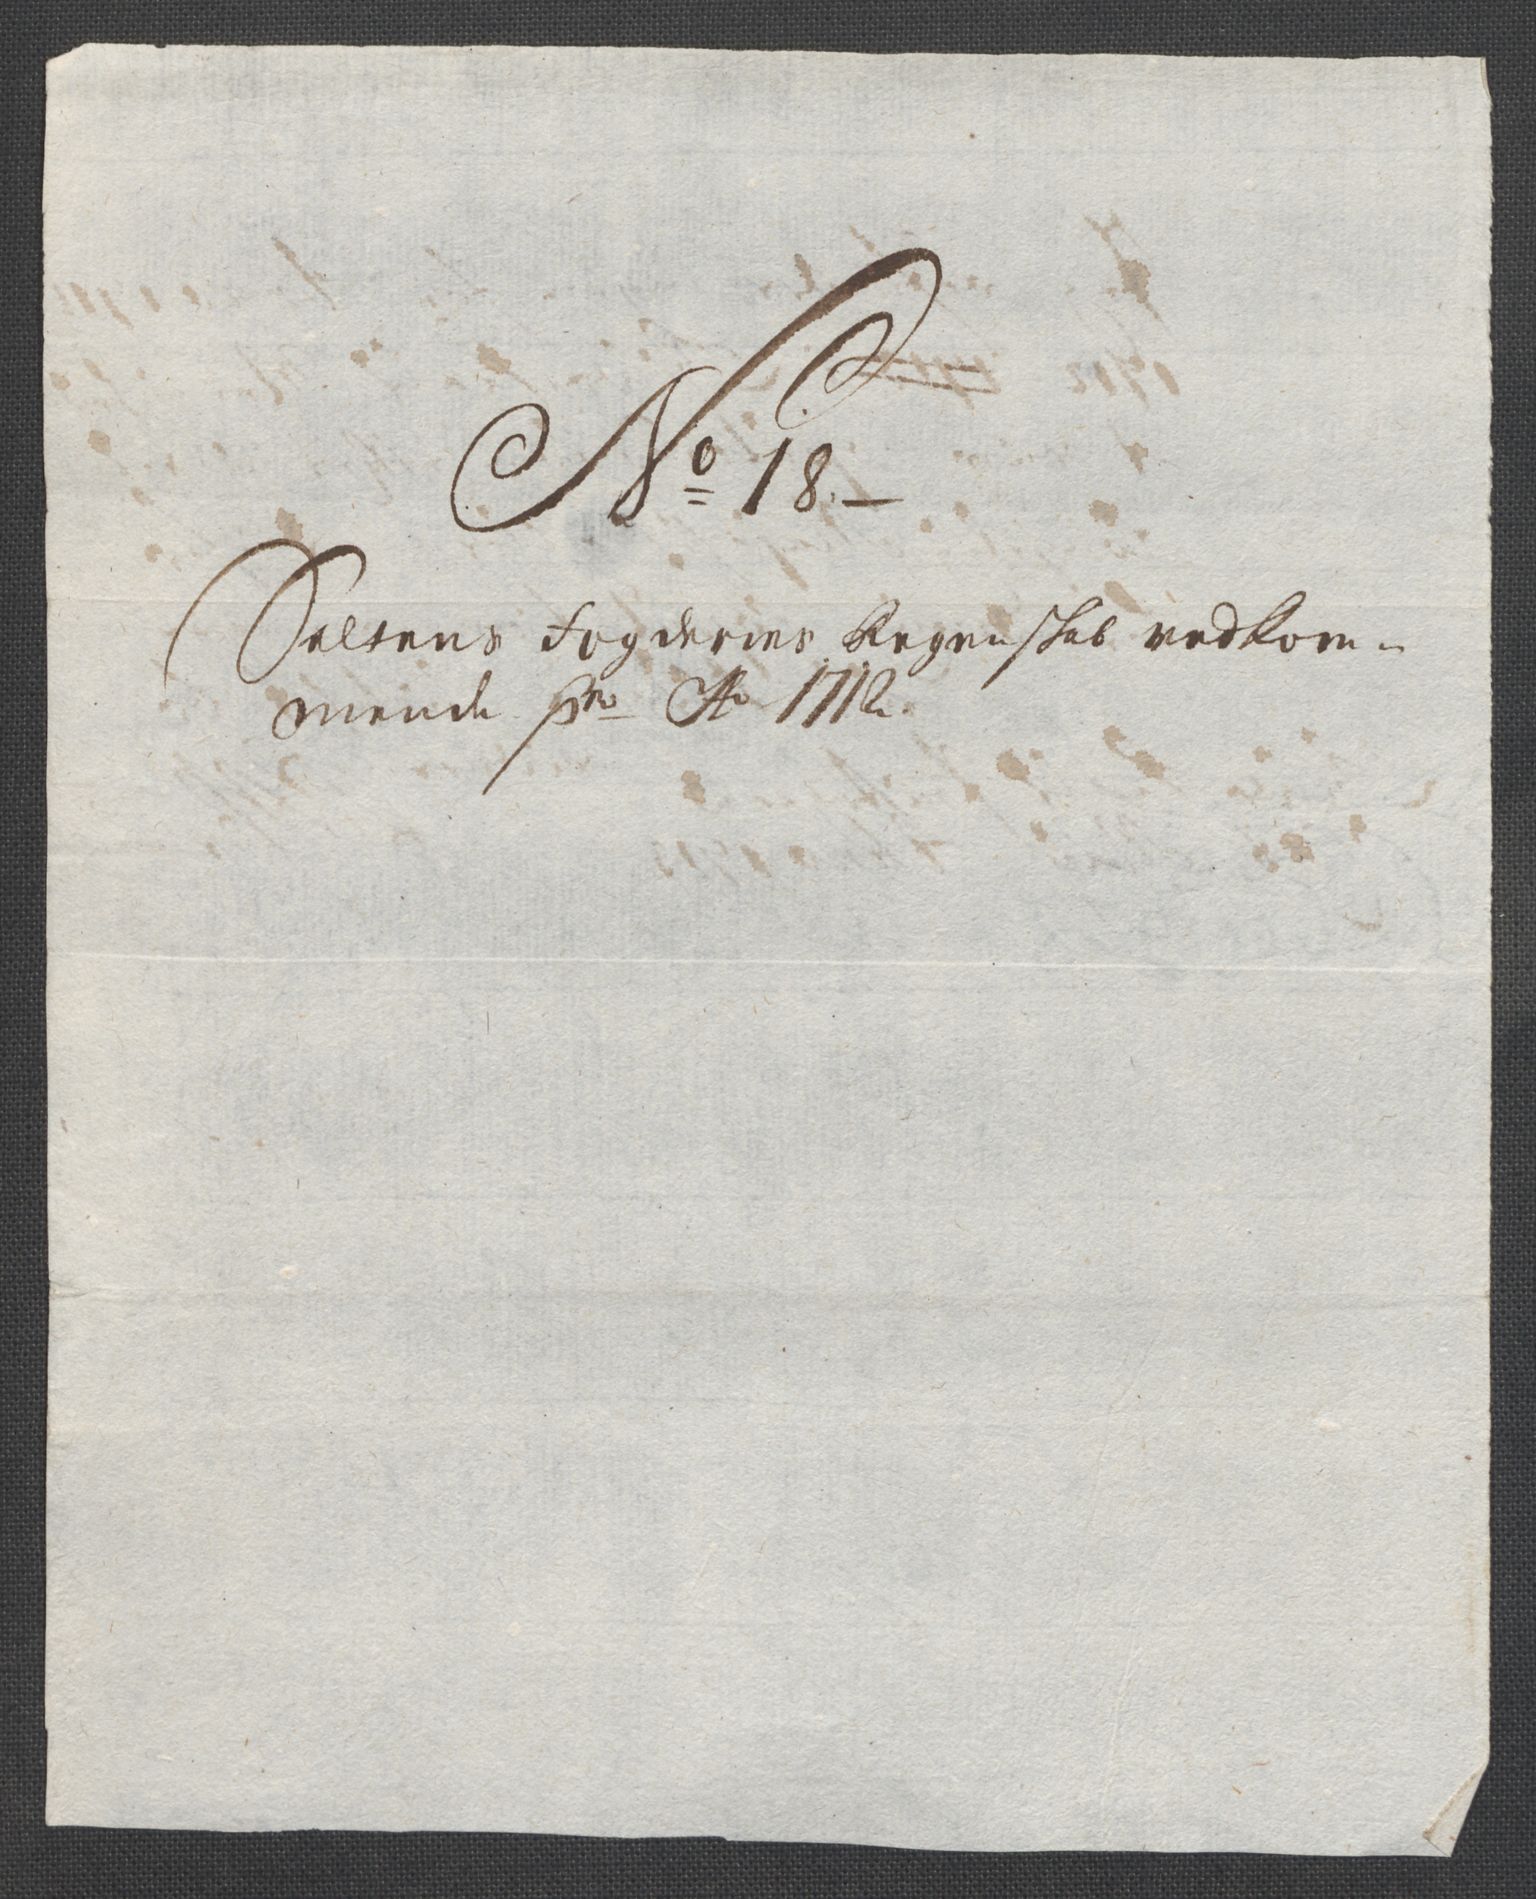 No 18.
Saltens Fogderies Regenskab vedkom-
mende pro Ao 1712.